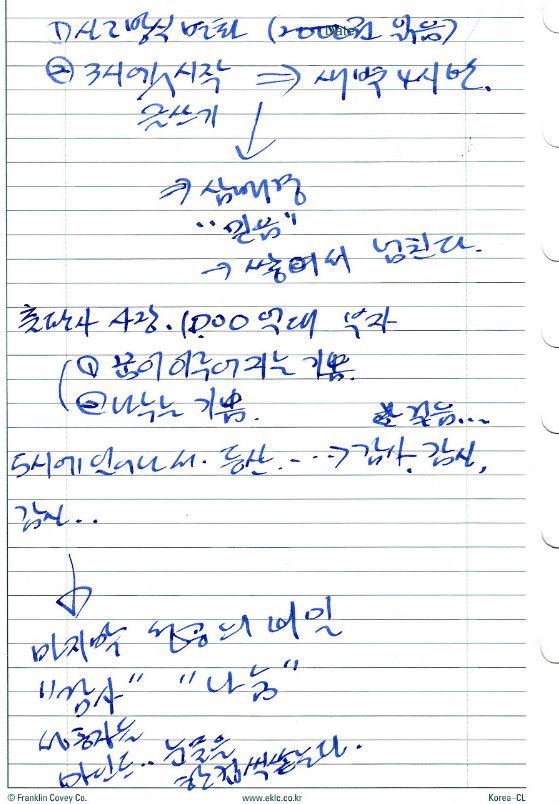 1) 사고방식 변화 (2000권 읽음)
② 3시에 시작 ⇒ 새벽 4시반.
글쓰기
⇒ 삼매경
"믿음"
→ 쌓여서 넘친다.
사장. 1,000억대 부자
① 꿈이 이루어지는 기쁨.
② 나누는 기쁨. 한 걸음...
5시에 일어나서. 등산. --→ 감사. 감사,
감사..
마지막 성공의 비밀
"감사" "나눔"
마인드.. 눈물을
© Franklin Covey Co. www.eklc.co.kr Korea-CL